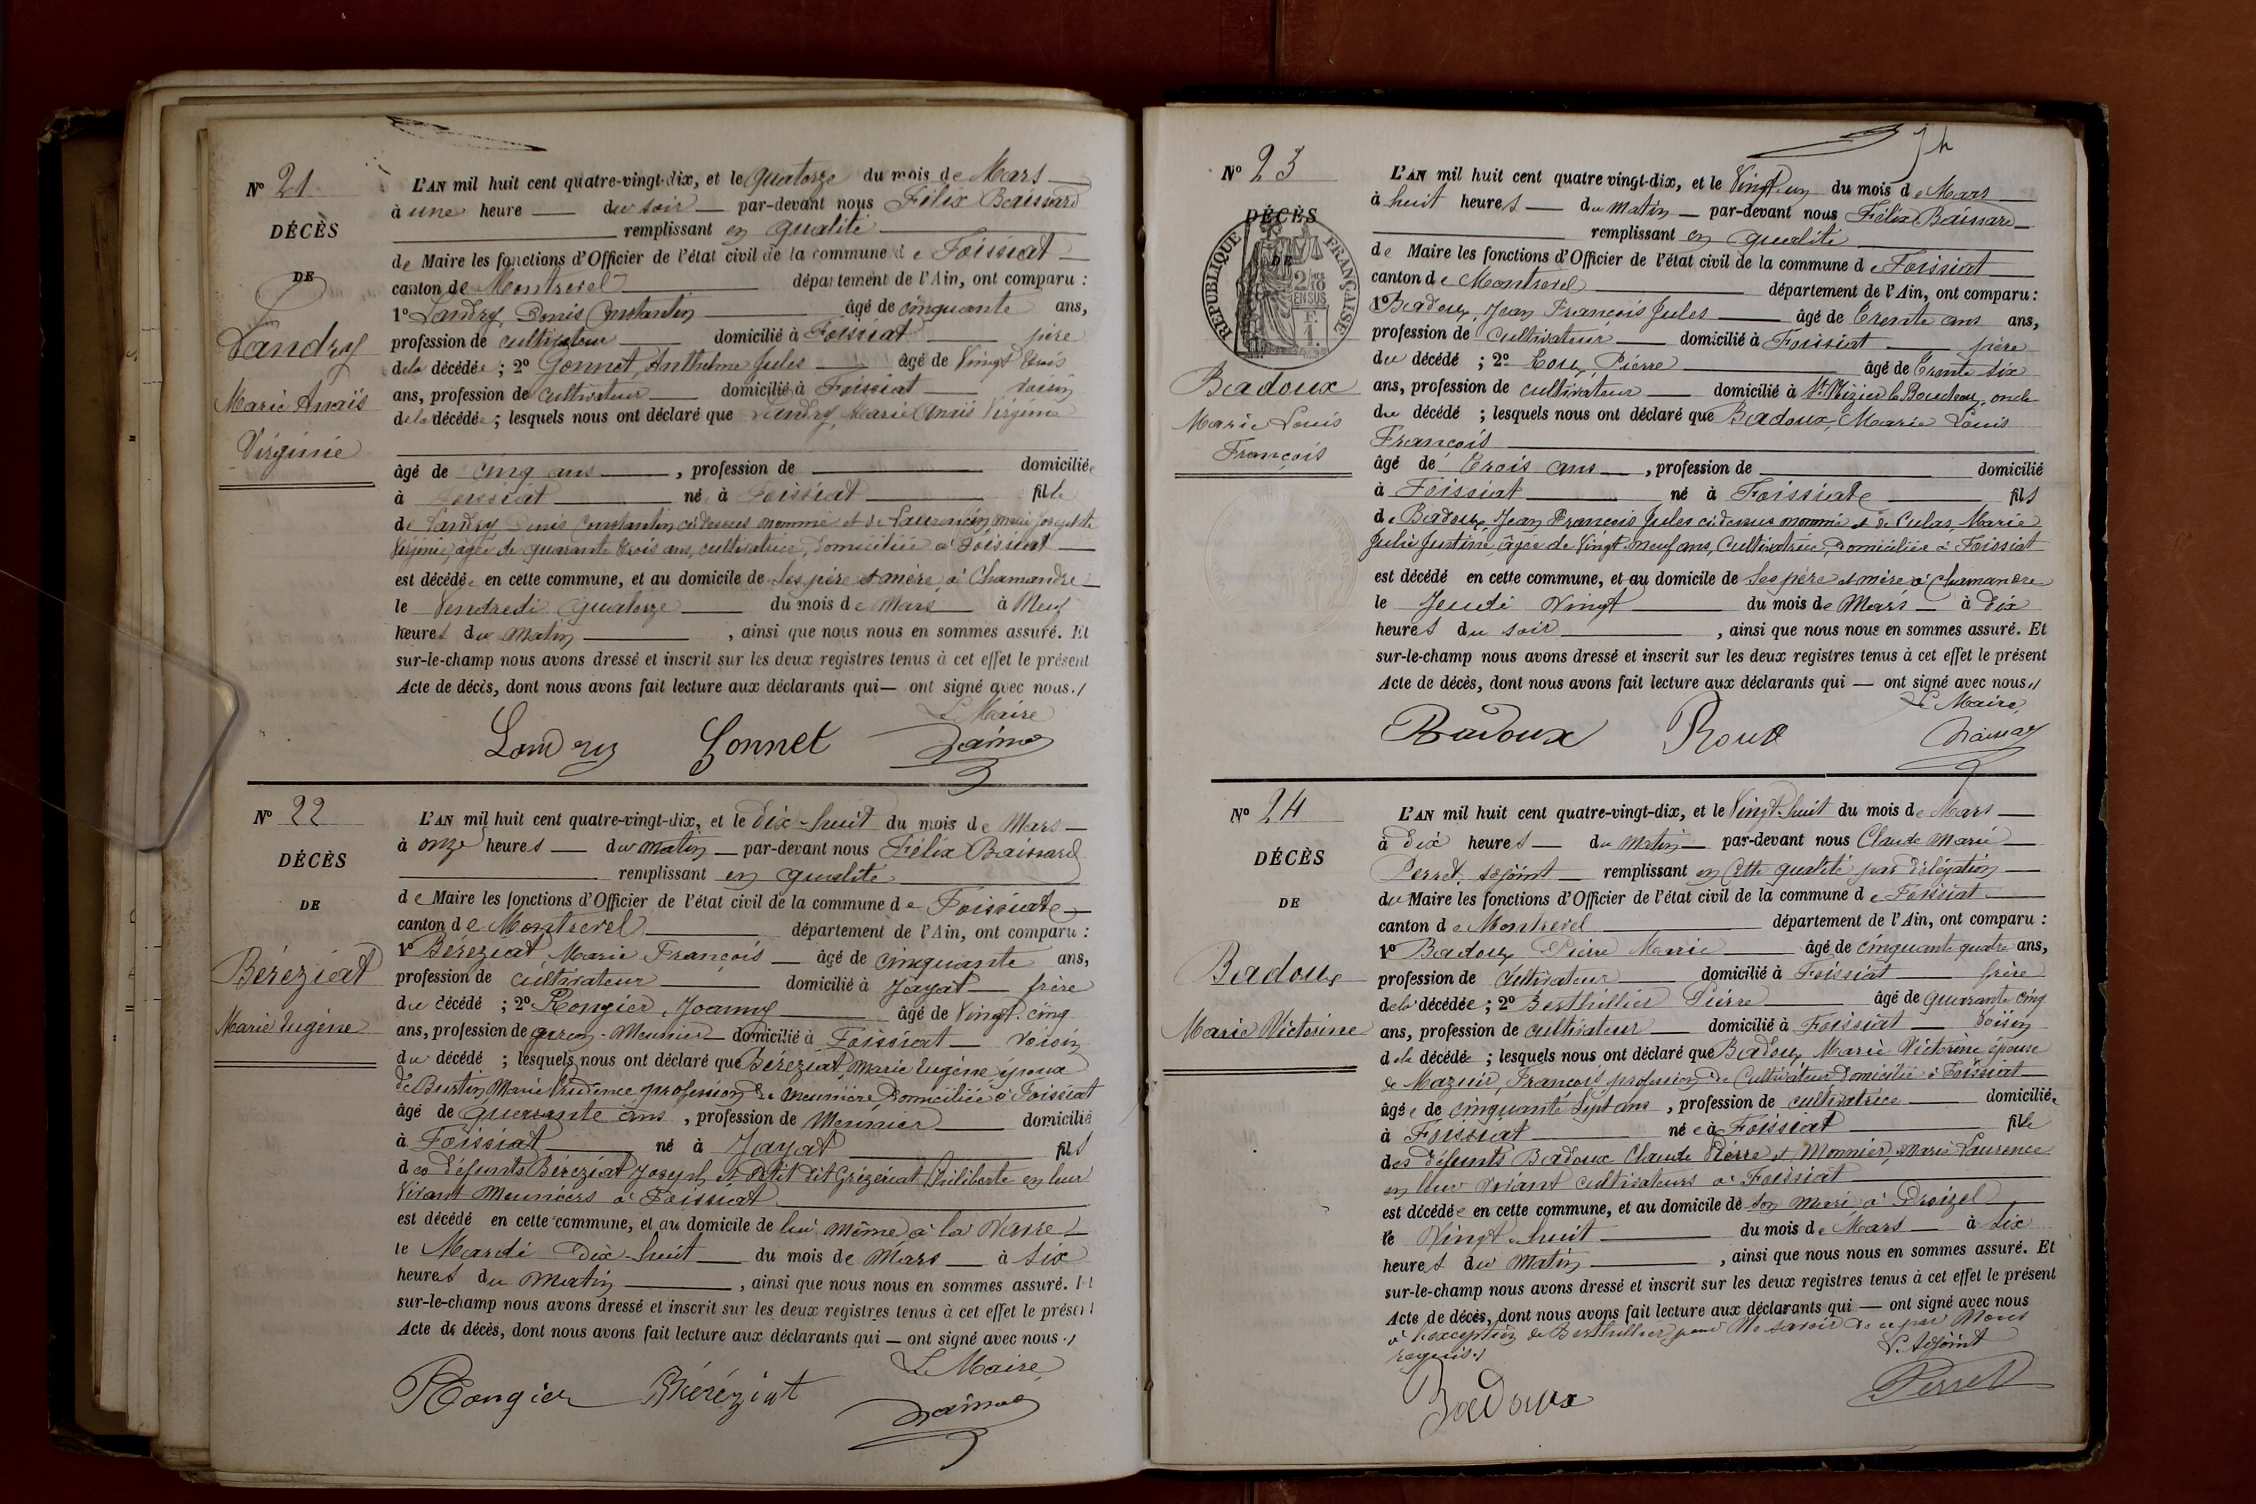 Nº 21
DÉCÈS
DE
Landry
Marie Anaïs
Virginie
L'AN mil huit cent quatre-vingt-dix, et le quatorze du mois de Mars
à une heure du soir par-devant nous Félix Baissard
remplissant en qualité
de Maire les fonctions d'Officier de l'état civil de la commune de Foissiat
canton de Montrevel département de l'Ain, ont comparu :
1º Landry, Denis Constantin âgé de cinquante ans,
profession de cultivateur domicilié à Foissiat père
de la décédée ; 2º Gonnet, Anthelme Jules âgé de Vingt trois
ans, profession de cultivateur domicilié à Foissiat voisin
de la décédée ; lesquels nous ont déclaré que Landry, Marie Anaïs Virginie
âgé de cinq ans, profession de domiciliée
à Foissiat né à Foissiat fille
de Landry Denis Constantin ci-dessus nommé et de Laurencin, Marie Josephte
Virginie, âgée de quarante trois ans, cultivatrice, domiciliée à Foissiat
est décédée en cette commune, et au domicile de ses père et mère à Chamandre
le Vendredi quatorze du mois de Mars à Neuf
heures du Matin, ainsi que nous nous en sommes assuré. Et
sur-le-champ nous avons dressé et inscrit sur les deux registres tenus à cet effet le présent
Acte de décès, dont nous avons fait lecture aux déclarants qui — ont signé avec nous ./
Le Maire
Landry Gonnet
Nº 22
DÉCÈS
DE
Béréziat
Marie Eugène
L'AN mil huit cent quatre-vingt-dix, et le dix-huit du mois de Mars
à onze heures du matin par-devant nous Félix Baissard
remplissant en qualité
de Maire les fonctions d'Officier de l'état civil de la commune de Foissiat
canton de Montrevel département de l'Ain, ont comparu :
1º Béréziat, Marie François âgé de cinquante ans,
profession de cultivateur domicilié à Jayat frère
du décédé ; 2º Rongier, Joanny âgé de Vingt-cinq
ans, profession de garçon-Meunier domicilié à Foissiat voisin
du décédé ; lesquels nous ont déclaré que Béréziat, Marie Eugène époux
de Burtin, Marie Prudence profession de meunière, domiciliée à Foissiat
âgé de quarante ans, profession de Meunier domicilié
à Foissiat né à Jayat fils
des défunts Béréziat Joseph et Petit dit Grézériat Philiberte en leur
vivant Meuniers à Foissiat
est décédé en cette commune, et au domicile de lui même à la
le Mardi Dix-huit du mois de Mars à Six
heures du Matin, ainsi que nous nous en sommes assuré. Et
sur-le-champ nous avons dressé et inscrit sur les deux registres tenus à cet effet le présent
Acte de décès, dont nous avons fait lecture aux déclarants qui — ont signé avec nous ./
Le Maire,
Rongier Béréziat
Nº 23
DÉCÈS
DE
RÉPUBLIQUE FRANÇAISE
2/10 EN SUS
Badoux
Marie Louis
François
L'AN mil huit cent quatre vingt-dix, et le Vingt-un du mois de Mars
à huit heures du Matin par-devant nous Félix Baissard
remplissant en qualité
de Maire les fonctions d'Officier de l'état civil de la commune de Foissiat
canton de Montrevel département de l'Ain, ont comparu :
1º Badoux, Jean François Jules âgé de trente ans ans,
profession de cultivateur domicilié à Foissiat père
du décédé ; 2º Roux, Pierre âgé de trente six
ans, profession de cultivateur domicilié à St Nizier le Bouchoux, oncle
du décédé ; lesquels nous ont déclaré que Badoux, Marie Louis
François
âgé de trois ans, profession de domicilié
à Foissiat né à Foissiat fils
de Badoux Jean François Jules ci-dessus nommé et de Culas, Marie
Julie Justine, âgée de Vingt neuf ans, Cultivatrice, domiciliée à Foissiat
est décédé en cette commune, et au domicile de ses père et mère à Chamandre
le Jeudi Vingt du mois de Mars à Dix
heures du soir, ainsi que nous nous en sommes assuré. Et
sur-le-champ nous avons dressé et inscrit sur les deux registres tenus à cet effet le présent
Acte de décès, dont nous avons fait lecture aux déclarants qui — ont signé avec nous ./
Le Maire,
Badoux Roux
Nº 24
DÉCÈS
DE
Badoux
Marie Victorine
L'AN mil huit cent quatre-vingt-dix, et le Vingt-huit du mois de Mars
à dix heures du Matin par-devant nous Claude Marie
Perret, adjoint remplissant en Cette qualité par délégation
du Maire les fonctions d'Officier de l'état civil de la commune de Foissiat
canton de Montrevel département de l'Ain, ont comparu :
1º Badoux Pierre Marie âgé de cinquante quatre ans,
profession de Cultivateur domicilié à Foissiat frère
de la décédée ; 2º Berthillier Pierre âgé de quarante cinq
ans, profession de cultivateur domicilié à Foissiat voisin
de la décédée ; lesquels nous ont déclaré que Badoux Marie Victorine épouse
de Mazuir, François profession de Cultivateur domicilié à Foissiat
âgée de cinquante Sept ans, profession de cultivatrice domiciliée
à Foissiat née à Foissiat fille
des défunts Badoux Claude Pierre et Monnier, Marie Laurence
en leur vivant cultivateurs à Foissiat
est décédée en cette commune, et au domicile de son mari à Droizel
le Vingt-huit du mois de Mars à Six
heures du Matin, ainsi que nous nous en sommes assuré. Et
sur-le-champ nous avons dressé et inscrit sur les deux registres tenus à cet effet le présent
Acte de décès, dont nous avons fait lecture aux déclarants qui — ont signé avec nous
à l'exception de Berthillier pour ne savoir de ce par Nous
requis ./
L'Adjoint
Badoux Perret